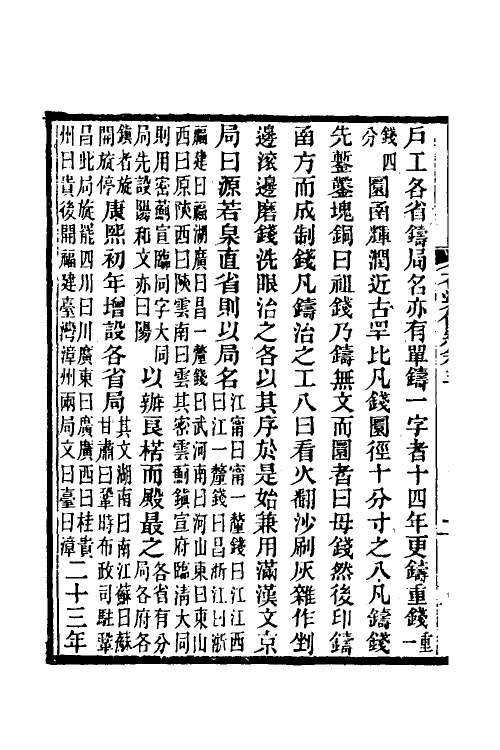 戶工各省鑄局名亦有單鑄一字者十四年更鑄重錢重一
錢四分圓函輝潤近古罕比凡錢圓徑十分寸之八凡鑄錢
先鏨鑿塊銅曰祖錢乃鑄無文而圓者曰母錢然後印鑄
函方而成制錢凡鑄治之工八曰看火翻沙刷灰雜作剉
邊滾邊磨錢洗眼治之各以其序於是始兼用滿漢文京
局曰源若泉直省則以局名江甯曰甯一釐錢曰江江西曰江一釐錢曰昌浙江曰浙
福建曰福湖廣曰昌一釐錢曰武河南曰河山東曰東山西曰原陝西曰陝雲南曰雲其密雲薊鎮宣府臨清大同
則用密薊宣臨同字大同局先設陽和文亦曰陽以辦良楛而殿最之各省有分局各府各
鎮者旋開旋停康熙初年增設各省局其文湖南曰南江蘇曰蘇甘肅曰鞏時布政司駐鞏
昌此局旋罷四川曰川廣東曰廣廣西曰桂貴州曰貴後開福建臺灣漳州兩局文曰臺曰漳二十三年